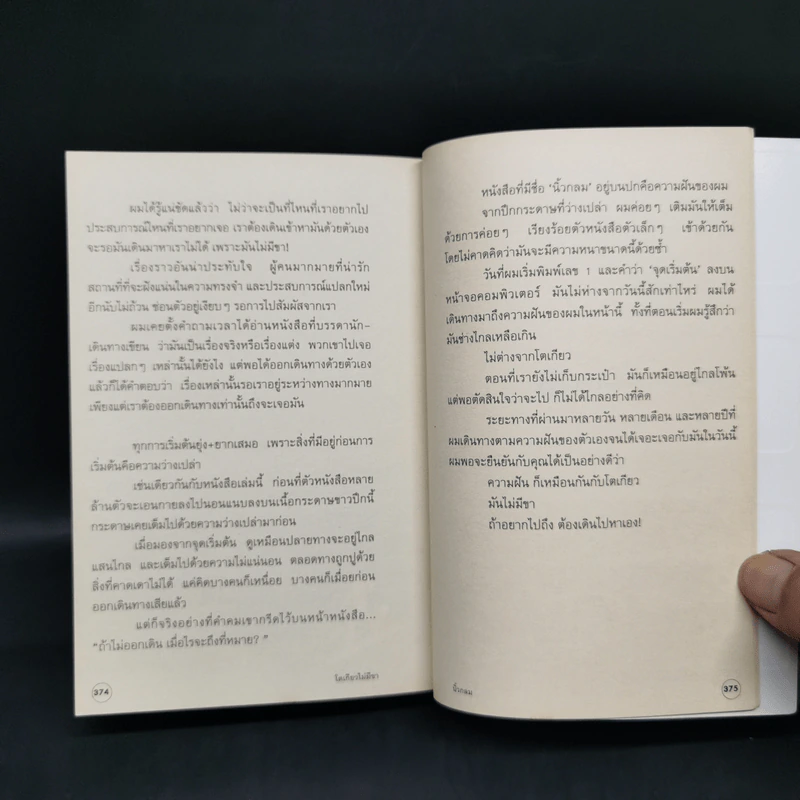 ผมได้รู้แน่ชัดแล้วว่า ไม่ว่าจะเป็นที่ไหนที่เราอยากไป
ประสบการณ์ไหนที่เราอยากเจอ เราต้องเดินเข้าหามันด้วยตัวเอง
จะรอมันเดินมาหาเราไม่ได้ เพราะมันไม่มีขา!
เรื่องราวอันน่าประทับใจ ผู้คนมากมายที่น่ารัก
สถานที่ที่จะฝังแน่นในความทรงจำ และประสบการณ์แปลกใหม่
อีกนับไม่ถ้วน ซ่อนตัวอยู่เงียบๆ รอการไปสัมผัสจากเรา
ผมเคยตั้งคำถามเวลาได้อ่านหนังสือที่บรรดานัก-
เดินทางเขียน ว่ามันเป็นเรื่องจริงหรือเรื่องแต่ง พวกเขาไปเจอ
เรื่องแปลกๆ เหล่านั้นได้ยังไง แต่พอได้ออกเดินทางด้วยตัวเอง
แล้วก็ได้คำตอบว่า เรื่องเหล่านั้นรอเราอยู่ระหว่างทางมากมาย
เพียงแต่เราต้องออกเดินทางเท่านั้นถึงจะเจอมัน
ทุกการเริ่มต้นยุ่ง+ยากเสมอ เพราะสิ่งที่มีอยู่ก่อนการ
เริ่มต้นคือความว่างเปล่า
เช่นเดียวกันกับหนังสือเล่มนี้ ก่อนที่ตัวหนังสือหลาย
ล้านตัวจะเอนกายลงไปนอนแนบลงบนเนื้อกระดาษขาวปึกนี้
กระดาษเคยเต็มไปด้วยความว่างเปล่ามาก่อน
เมื่อมองจากจุดเริ่มต้น ดูเหมือนปลายทางจะอยู่ไกล
แสนไกล และเต็มไปด้วยความไม่แน่นอน ตลอดทางถูกปูด้วย
สิ่งที่คาดเดาไม่ได้ แค่คิดบางคนก็เหนื่อย บางคนก็เมื่อยก่อน
ออกเดินทางเสียแล้ว
แต่ก็จริงอย่างที่คำคมเขากรีดไว้บนหน้าหนังสือ...
"ถ้าไม่ออกเดิน เมื่อไรจะถึงที่หมาย? "
374
โตเกียวไม่มีขา
หนังสือที่มีชื่อ 'นิ้วกลม' อยู่บนปกคือความฝันของผม
จากปึกกระดาษที่ว่างเปล่า ผมค่อยๆ เติมมันให้เต็ม
ด้วยการค่อยๆ เรียงร้อยตัวหนังสือตัวเล็กๆ เข้าด้วยกัน
โดยไม่คาดคิดว่ามันจะมีความหนาขนาดนี้ด้วยซ้ำ
วันที่ผมเริ่มพิมพ์เลข 1 และคำว่า 'จุดเริ่มต้น' ลงบน
หน้าจอคอมพิวเตอร์ มันไม่ห่างจากวันนี้สักเท่าไหร่ ผมได้
เดินทางมาถึงความฝันของผมในหน้านี้ ทั้งที่ตอนเริ่มผมรู้สึกว่า
มันช่างไกลเหลือเกิน
ไม่ต่างจากโตเกียว
ตอนที่เรายังไม่เก็บกระเป๋า มันก็เหมือนอยู่ไกลโพ้น
แต่พอตัดสินใจว่าจะไป ก็ไม่ได้ไกลอย่างที่คิด
ระยะทางที่ผ่านมาหลายวัน หลายเดือน และหลายปีที่
ผมเดินทางตามความฝันของตัวเองจนได้เจอะเจอกับมันในวันนี้
ผมพอจะยืนยันกับคุณได้เป็นอย่างดีว่า
ความฝัน ก็เหมือนกันกับโตเกียว
มันไม่มีขา
ถ้าอยากไปถึง ต้องเดินไปหาเอง!
นิ้วกลม
375